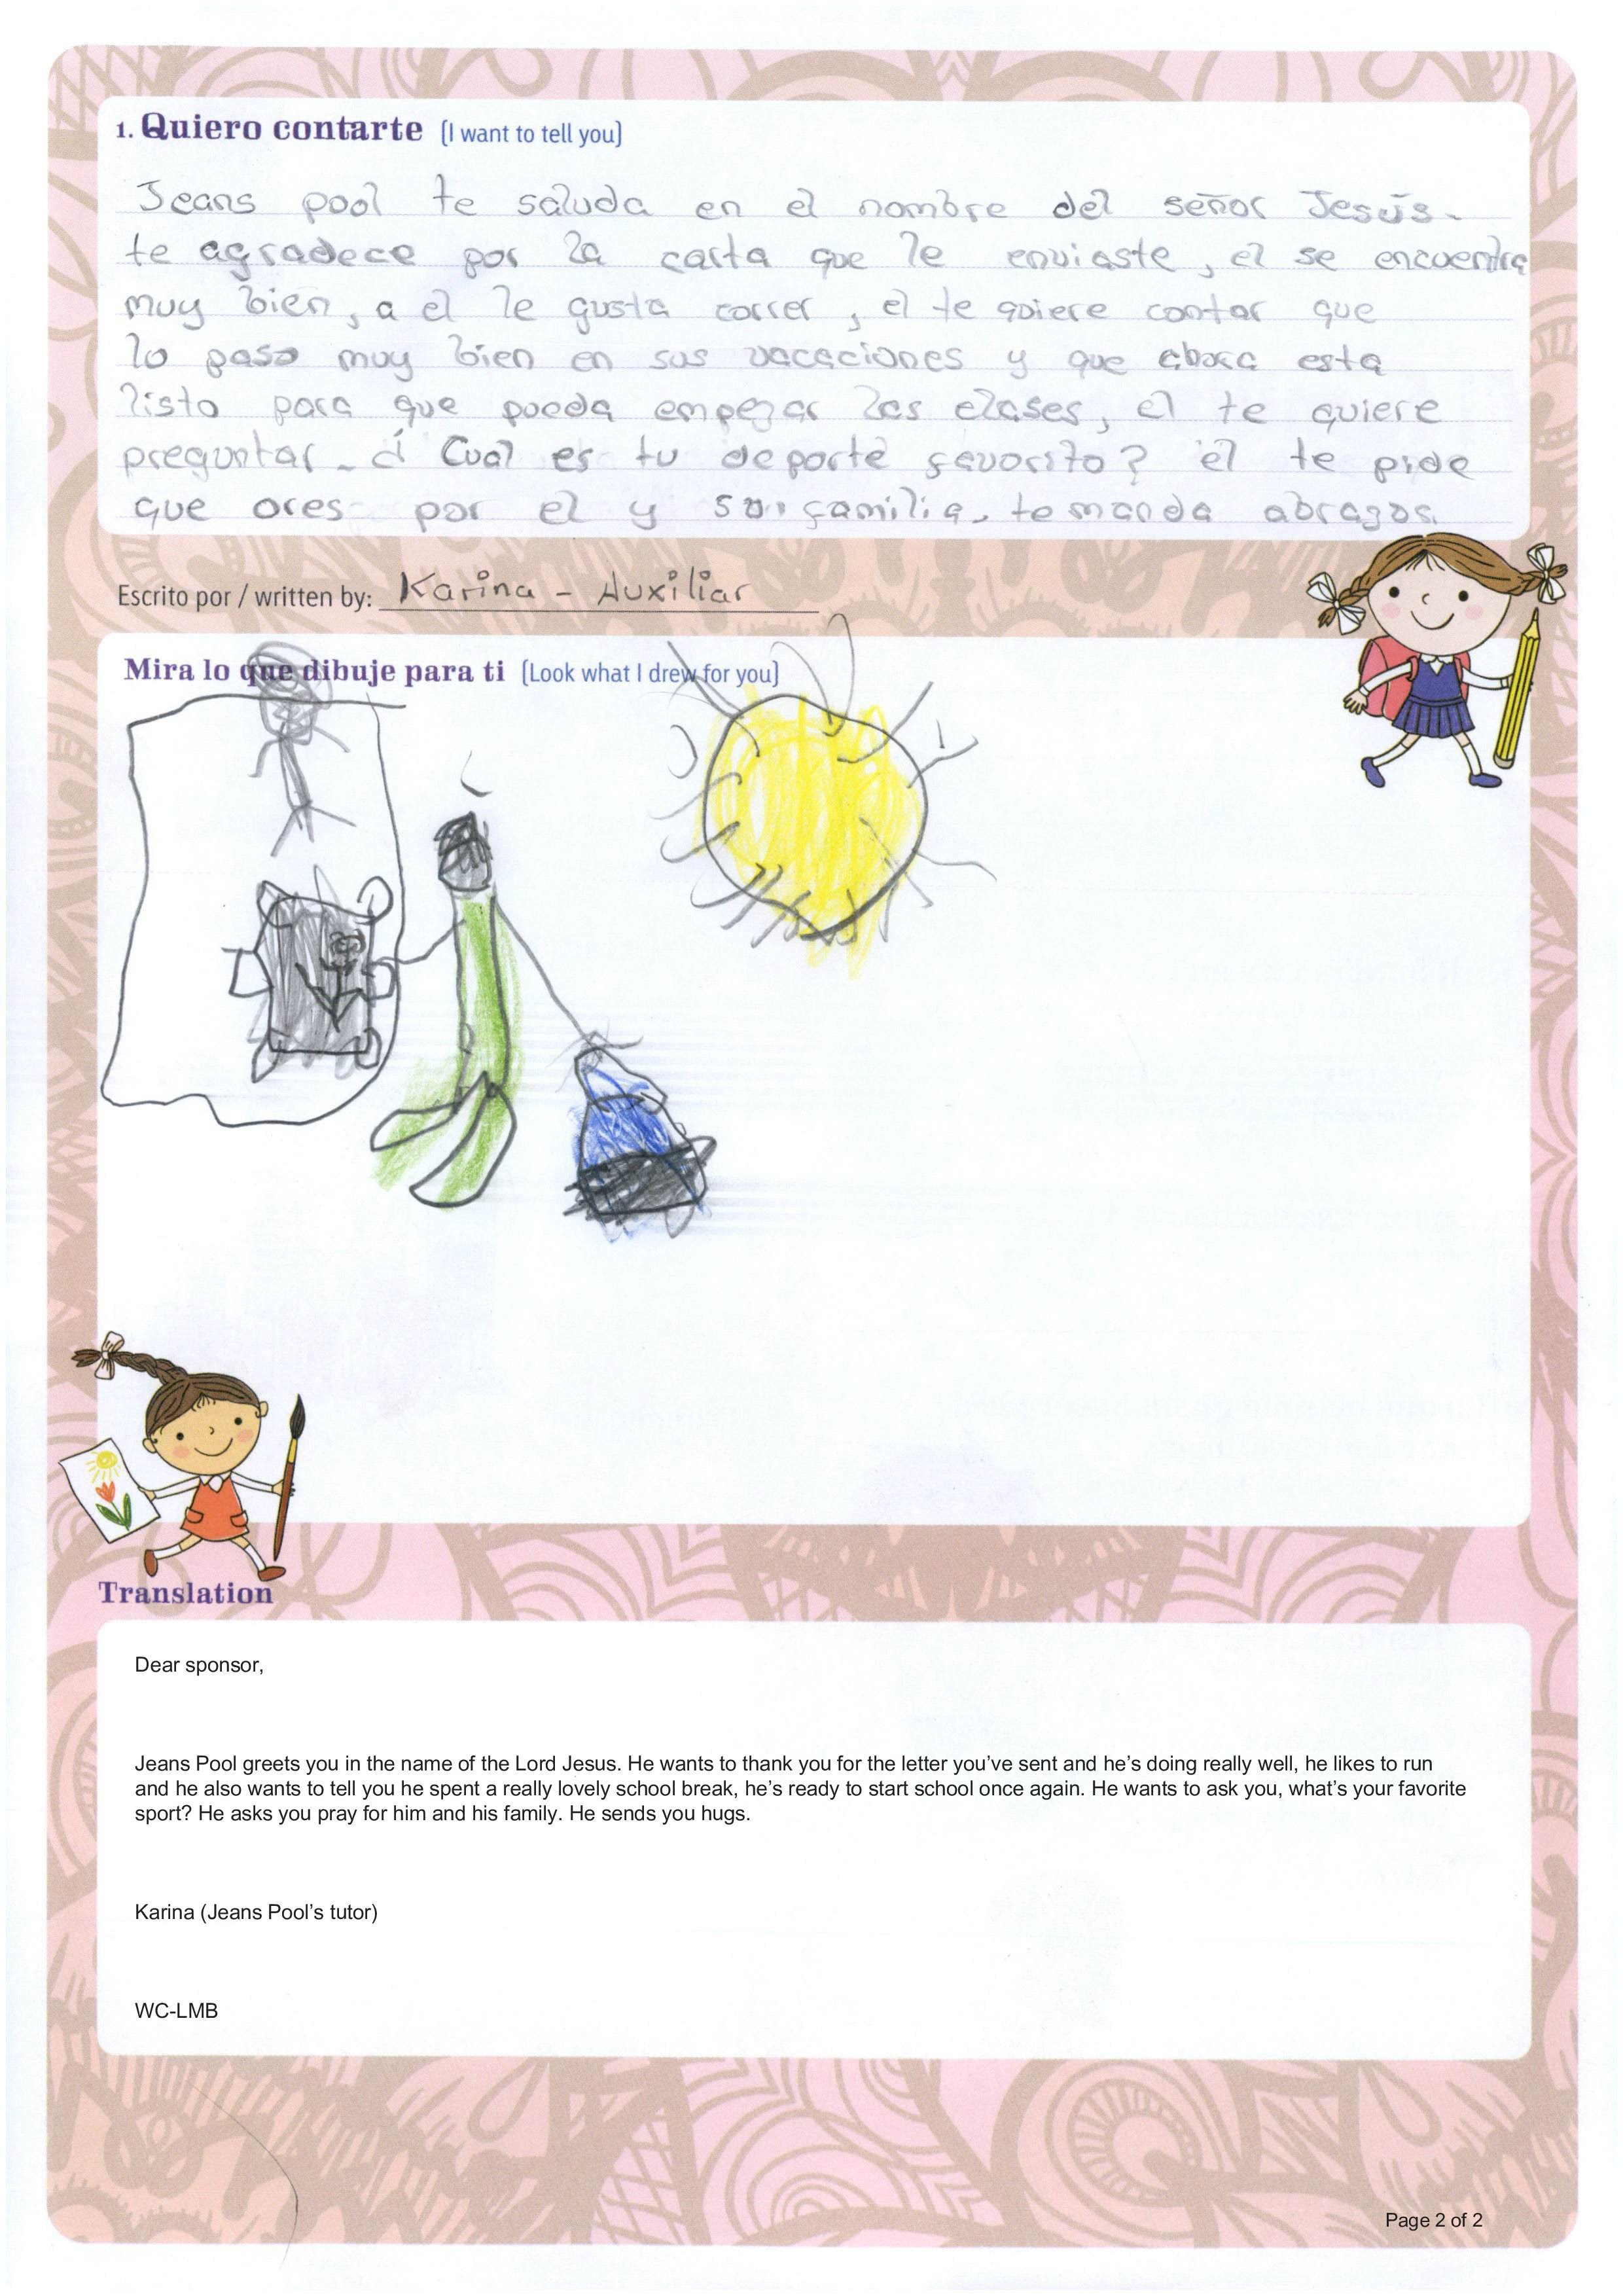 1. Quiero contarte (I want to tell you)
Jeans pool te saluda en el nombre del señor Jesús.
te agradece por la carta que le enviaste, el se encuentra
muy bien, a el le gusta correr, el te quiere contar que
lo paso muy bien en sus vacaciones y que ahora esta
listo para que pueda empezar las clases, el te quiere
preguntar. ¿Cual es tu deporte favorito? el te pide
que ores por el y su familia, te manda abrazos.
Escrito por / written by: Karina - Auxiliar
Mira lo que dibuje para ti (Look what I drew for you)
Translation
Dear sponsor,
Jeans Pool greets you in the name of the Lord Jesus. He wants to thank you for the letter you’ve sent and he’s doing really well, he likes to run
and he also wants to tell you he spent a really lovely school break, he’s ready to start school once again. He wants to ask you, what’s your favorite
sport? He asks you pray for him and his family. He sends you hugs.
Karina (Jeans Pool’s tutor)
WC-LMB
Page 2 of 2